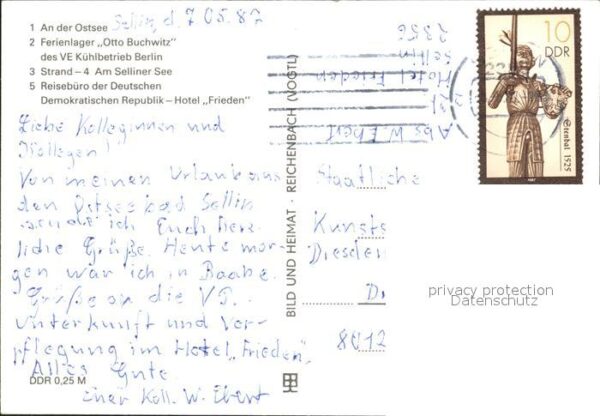 1 An der Ostsee
Sellin, d. 7 05. 87
2 Ferienlager „Otto Buchwitz“
des VE Kühlbetrieb Berlin
3 Strand – 4 Am Selliner See
5 Reisebüro der Deutschen
Demokratischen Republik – Hotel „Frieden“
Liebe Kolleginnen und
Kollegen!
Von meinen Urlaub aus
den Ostseebad Sellin
sende ich Euch herz-
liche Grüße. Heute mor-
gen war ich in Baabe.
Grüße an die
Unterkunft und Ver-
pflegung im Hotel „Frieden“
Alles Gute
Euer Koll. W. Ebert
DDR 0,25 M
BILD UND HEIMAT · REICHENBACH (VOGTL)
Abs W. Ebert
Hotel Frieden
Sellin
2356
10
DDR
Stendal 1525
Staatliche
Kunsts
Dresden
D
8012
privacy protection
Datenschutz